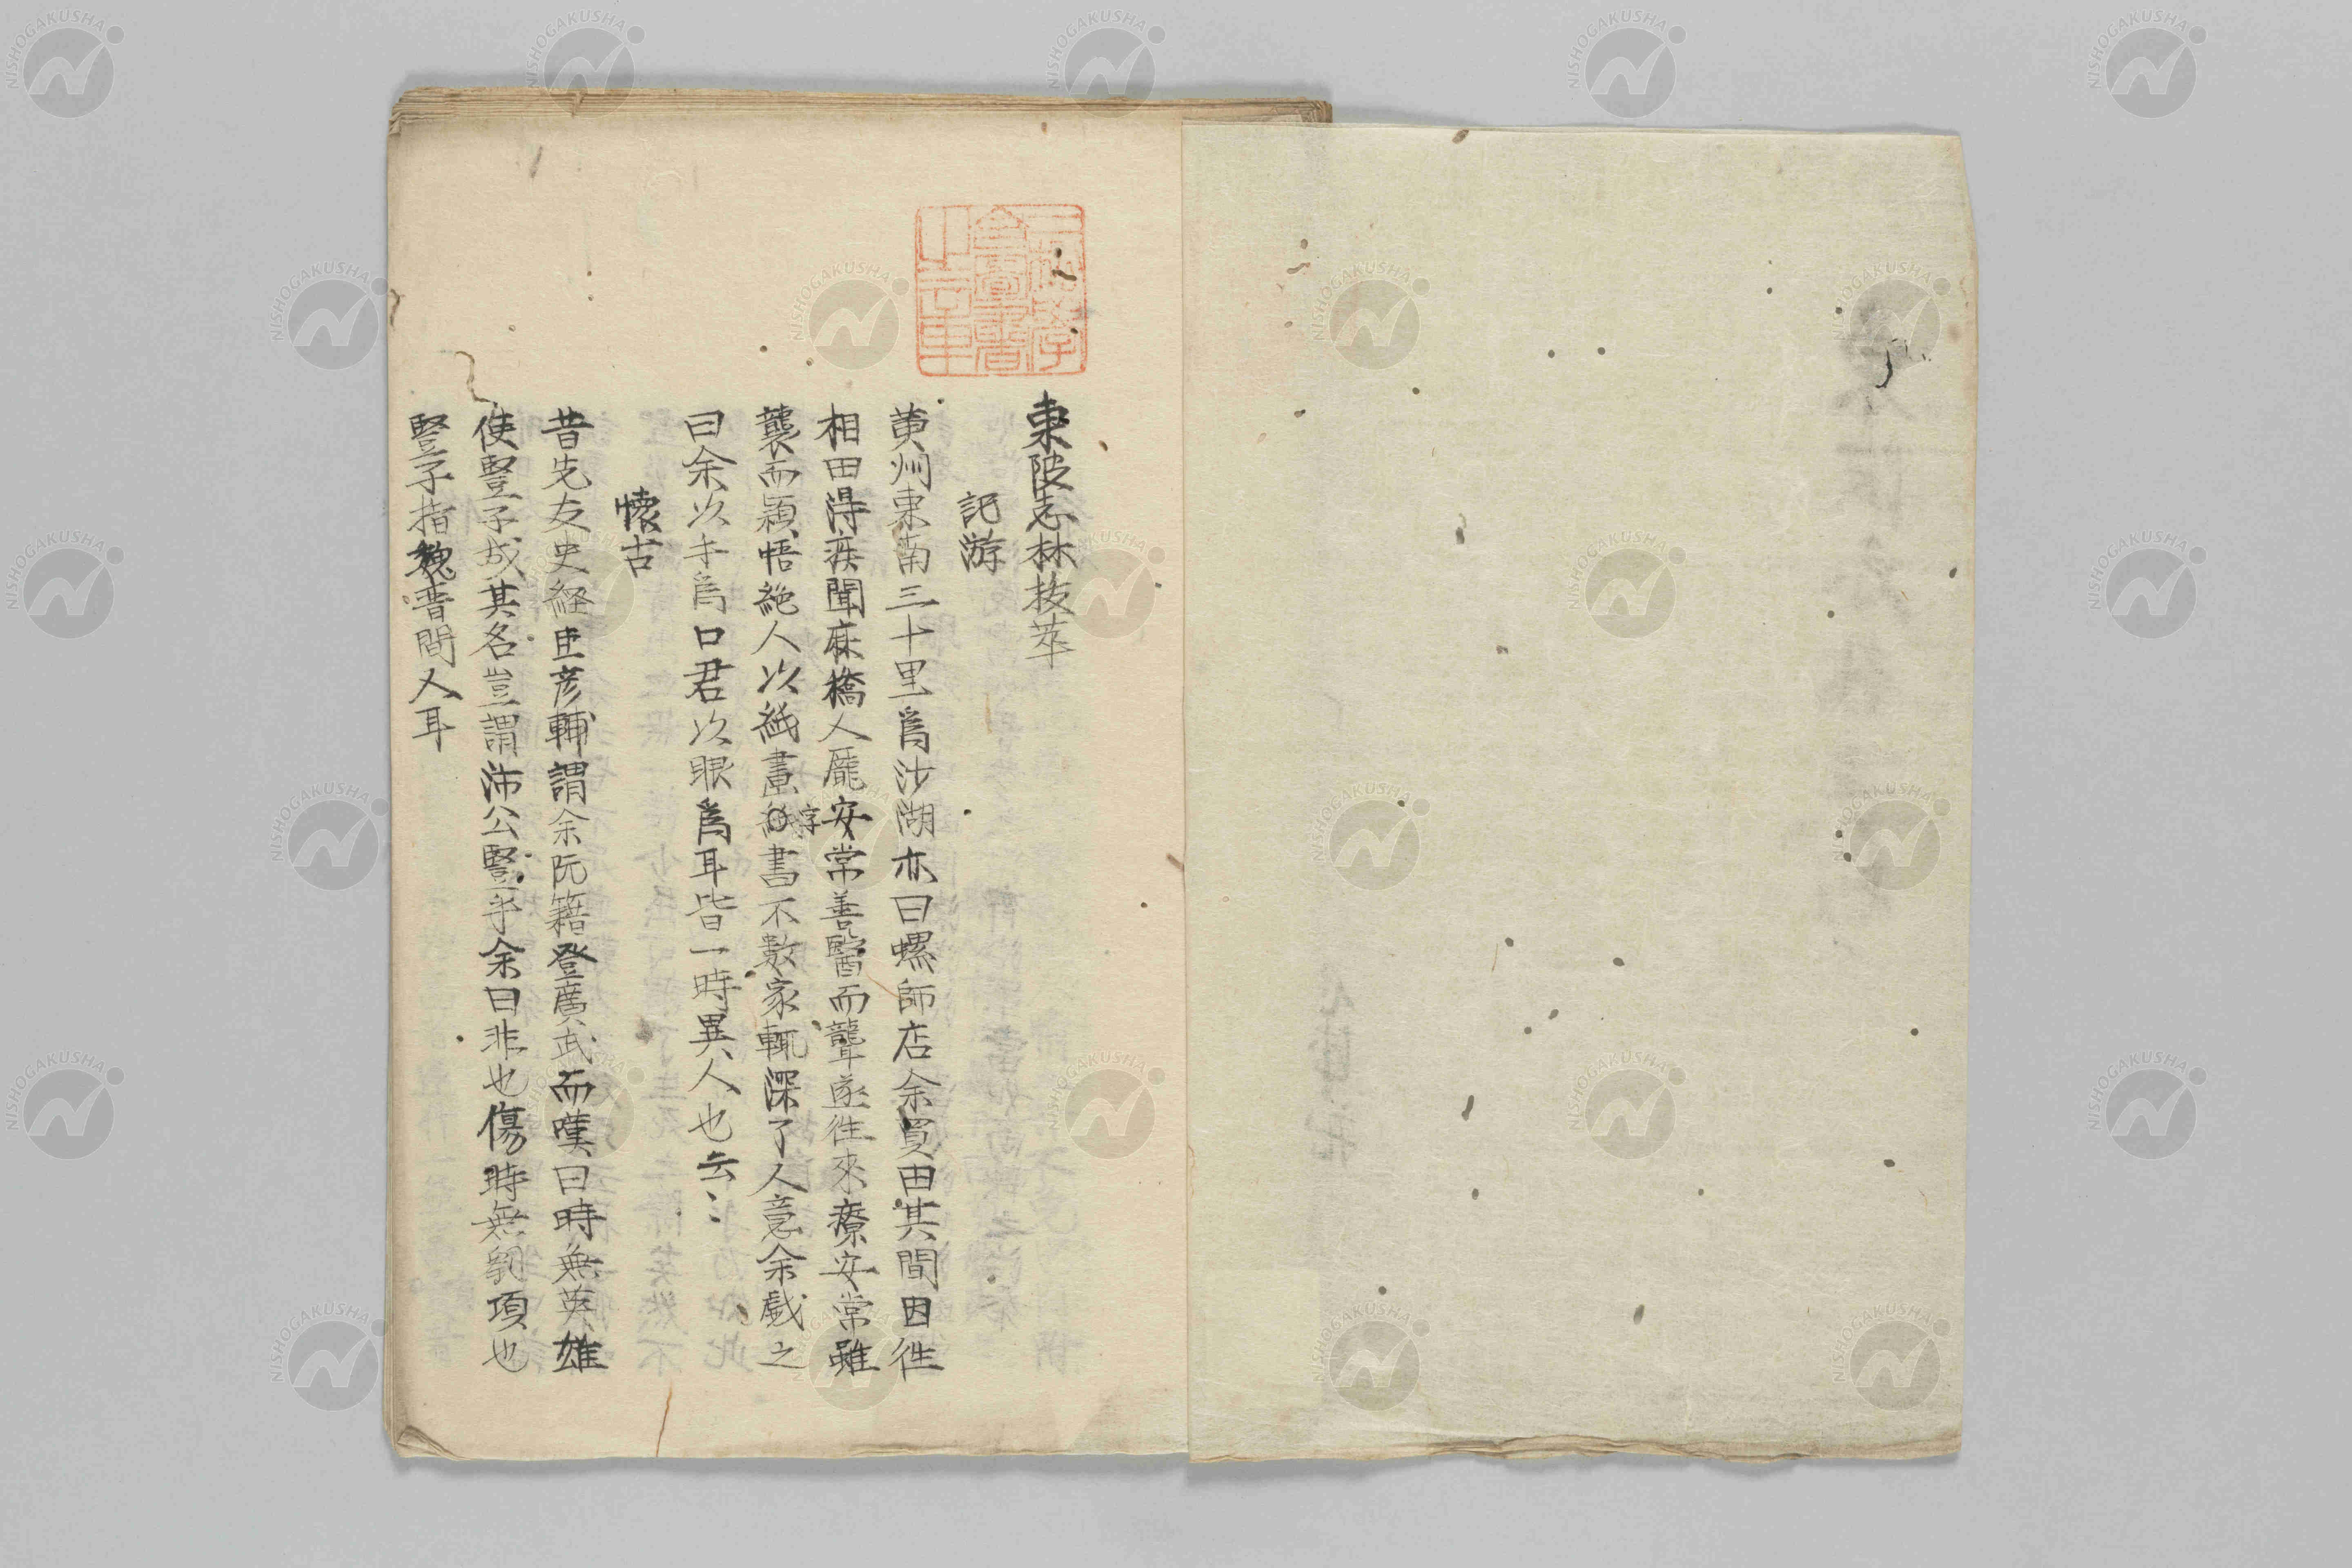 東陂志林抜萃
記游
黄州東南三十里爲沙湖亦曰螺師店余買田其間因徃
相田得疾聞麻橋人龐安常善醫而聾遂徃求療安常雖
聾而穎悟絶人以紙畫字書不數家輙深了人意余戯之
曰余以手爲口君以眼爲耳皆一時異人也云〻
懷古
昔先友史経臣彦輔謂余阮籍登廣武而嘆曰時無英雄
使豎子成其名豈謂沛公豎子乎余曰非也傷時無劉項也
豎子指魏晋間人耳
NISHOGAKUSHA